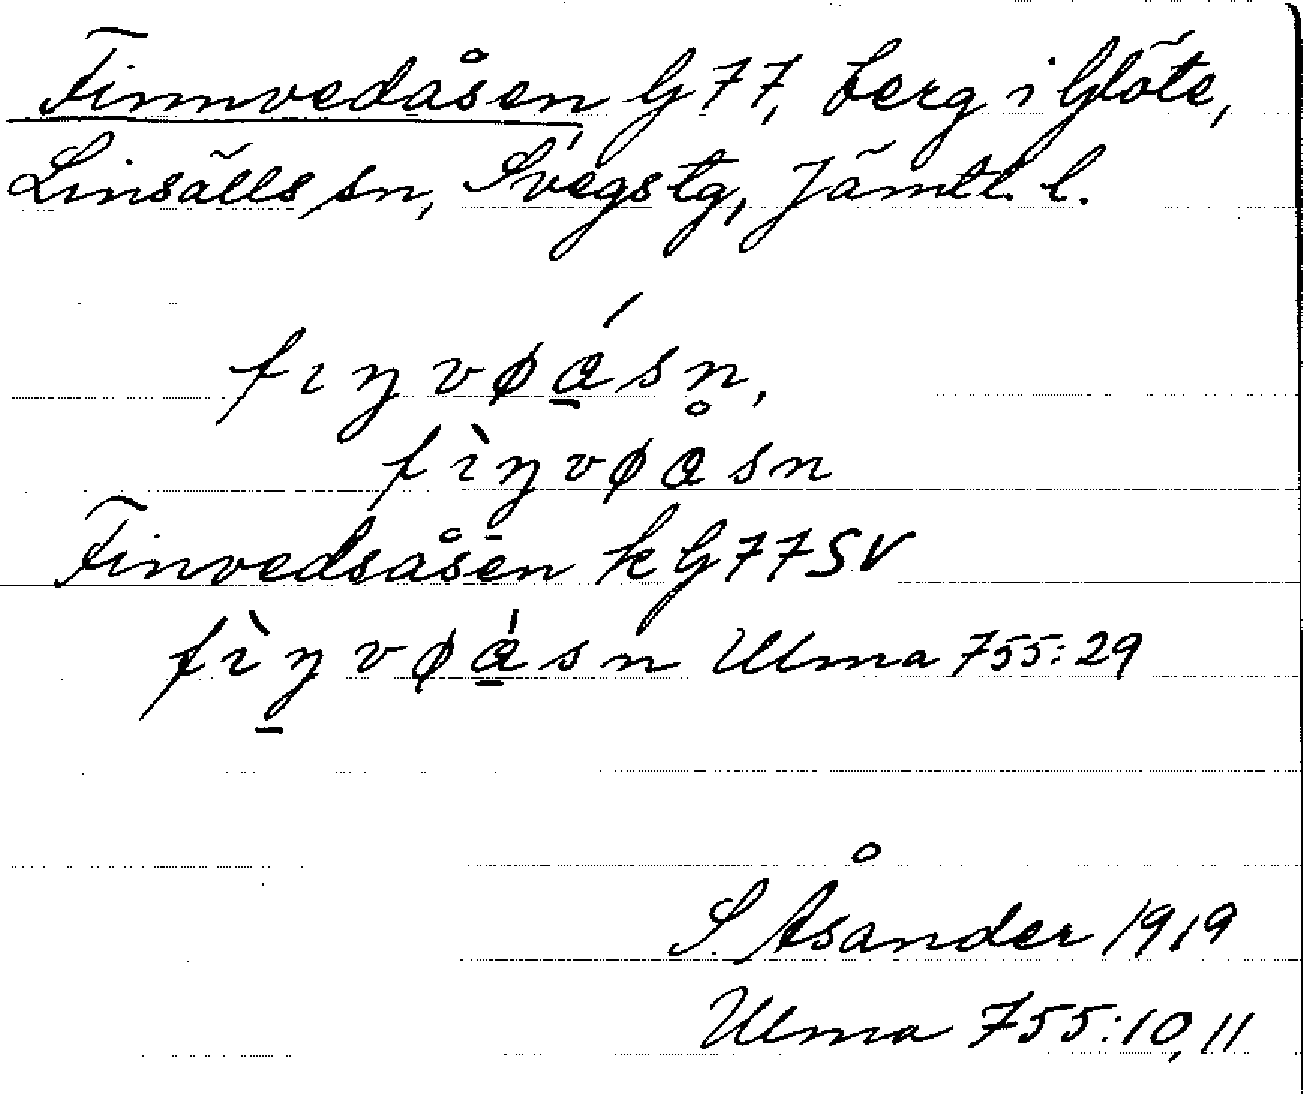 Finnvedåsen G77, berg i Glöte,
Linsälls sn, Svegs tg, Jämtl. l.
fıŋvøá̱sn̥,
fìŋvøåsn
Finvedsåsen k G77SV
fìŋ̱vøá̱sn Ulma 755:29
S. Åsander 1919
Ulma 755:10,11